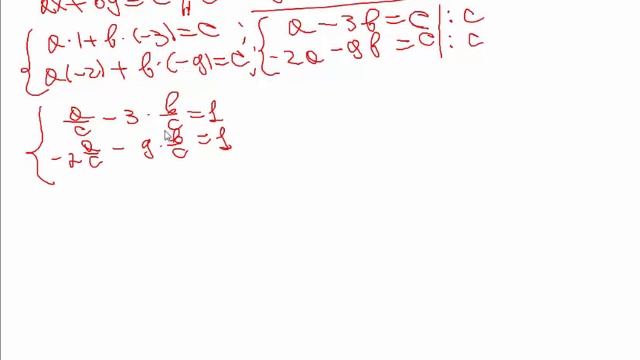 ax + by = c
{ a·1 + b·(-3) = c ; { a - 3b = c | : c
a(-2) + b·(-9) = c ; -2a - 9b = c | : c
{ a/c - 3·b/c = 1
-2 a/c - 9·b/c = 1